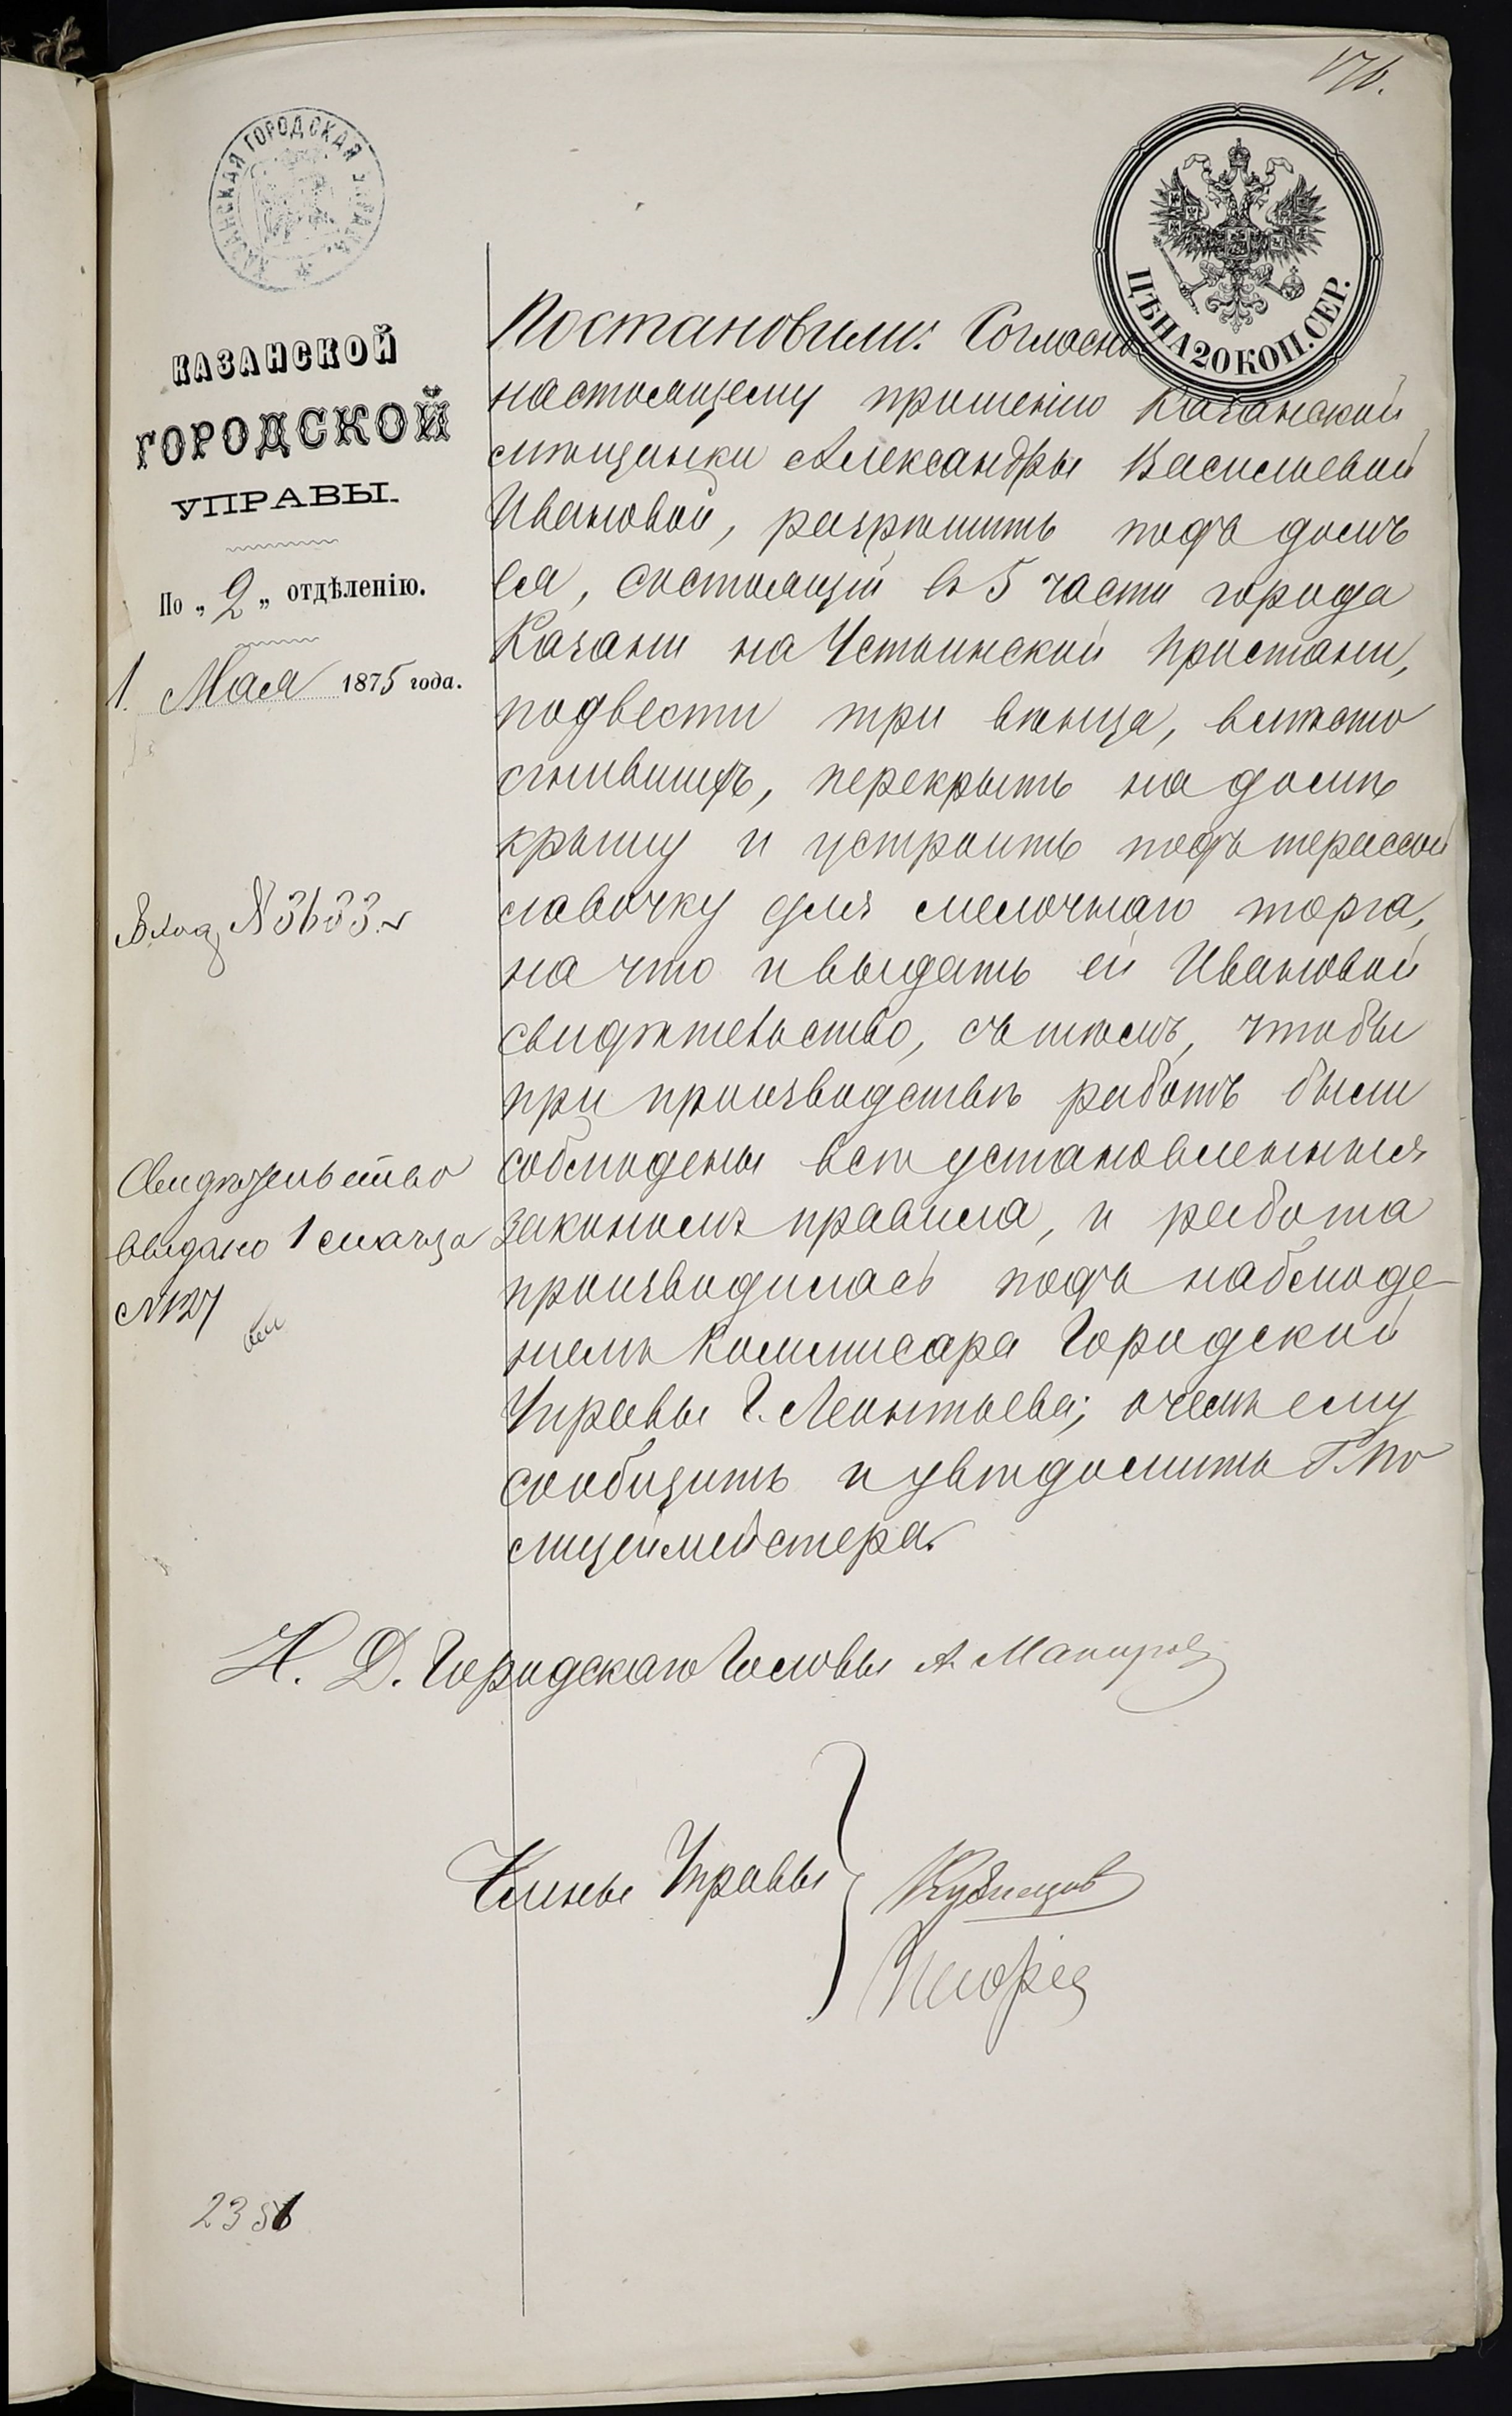 176.
КАЗАНСКАЯ ГОРОДСКАЯ УПРАВА
ЦѢНА 20 КОП. СЕР.
КАЗАНСКОЙ
ГОРОДСКОЙ
УПРАВЫ.
По „2„ отдѣленію.
1. Мая 1875 года.
Вход. № 3633.
Свидѣтельство
выдано 1 мая за
№ 127
Постановили: Согласно
настоящему прошенію Казанской
мѣщанки Александры Васильевой
Ивановой, разрѣшить подъ домъ
ея, состоящій въ 5 части города
Казани на Устьинской пристани,
подвести три вѣнца, вмѣсто
сгнившихъ, перекрыть на домѣ
крышу и устроить подъ терассой
лавочку для мелочнаго торга,
на что и выдать ей Ивановой
свидѣтельство, съ тѣмъ, чтобы
при производствѣ работъ были
соблюдены всѣ установленныя
закономъ правила, и работа
производилась подъ наблюде-
ніемъ Коммисара Городской
Управы Г. Леонтьева; о чемъ ему
сообщить и увѣдомить Г. По
лицеймейстера.
И. Д. Городскаго Головы А.
Члены Управы } Кузнецов
2356